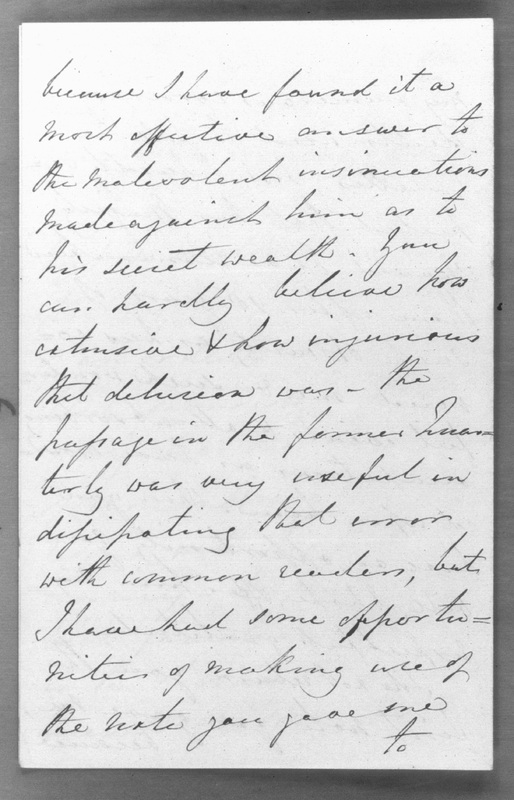 because I have found it a
most effective answer to
the malevolent insinuations
made against him as to
his secret wealth. You
can hardly believe how
extensive & how injurious
that delusion was – the
passage in the former Quar=
terly was very useful in
dissipating that error
with common readers, but
I have had some opportu=
nities of making use of
the note you gave me
to